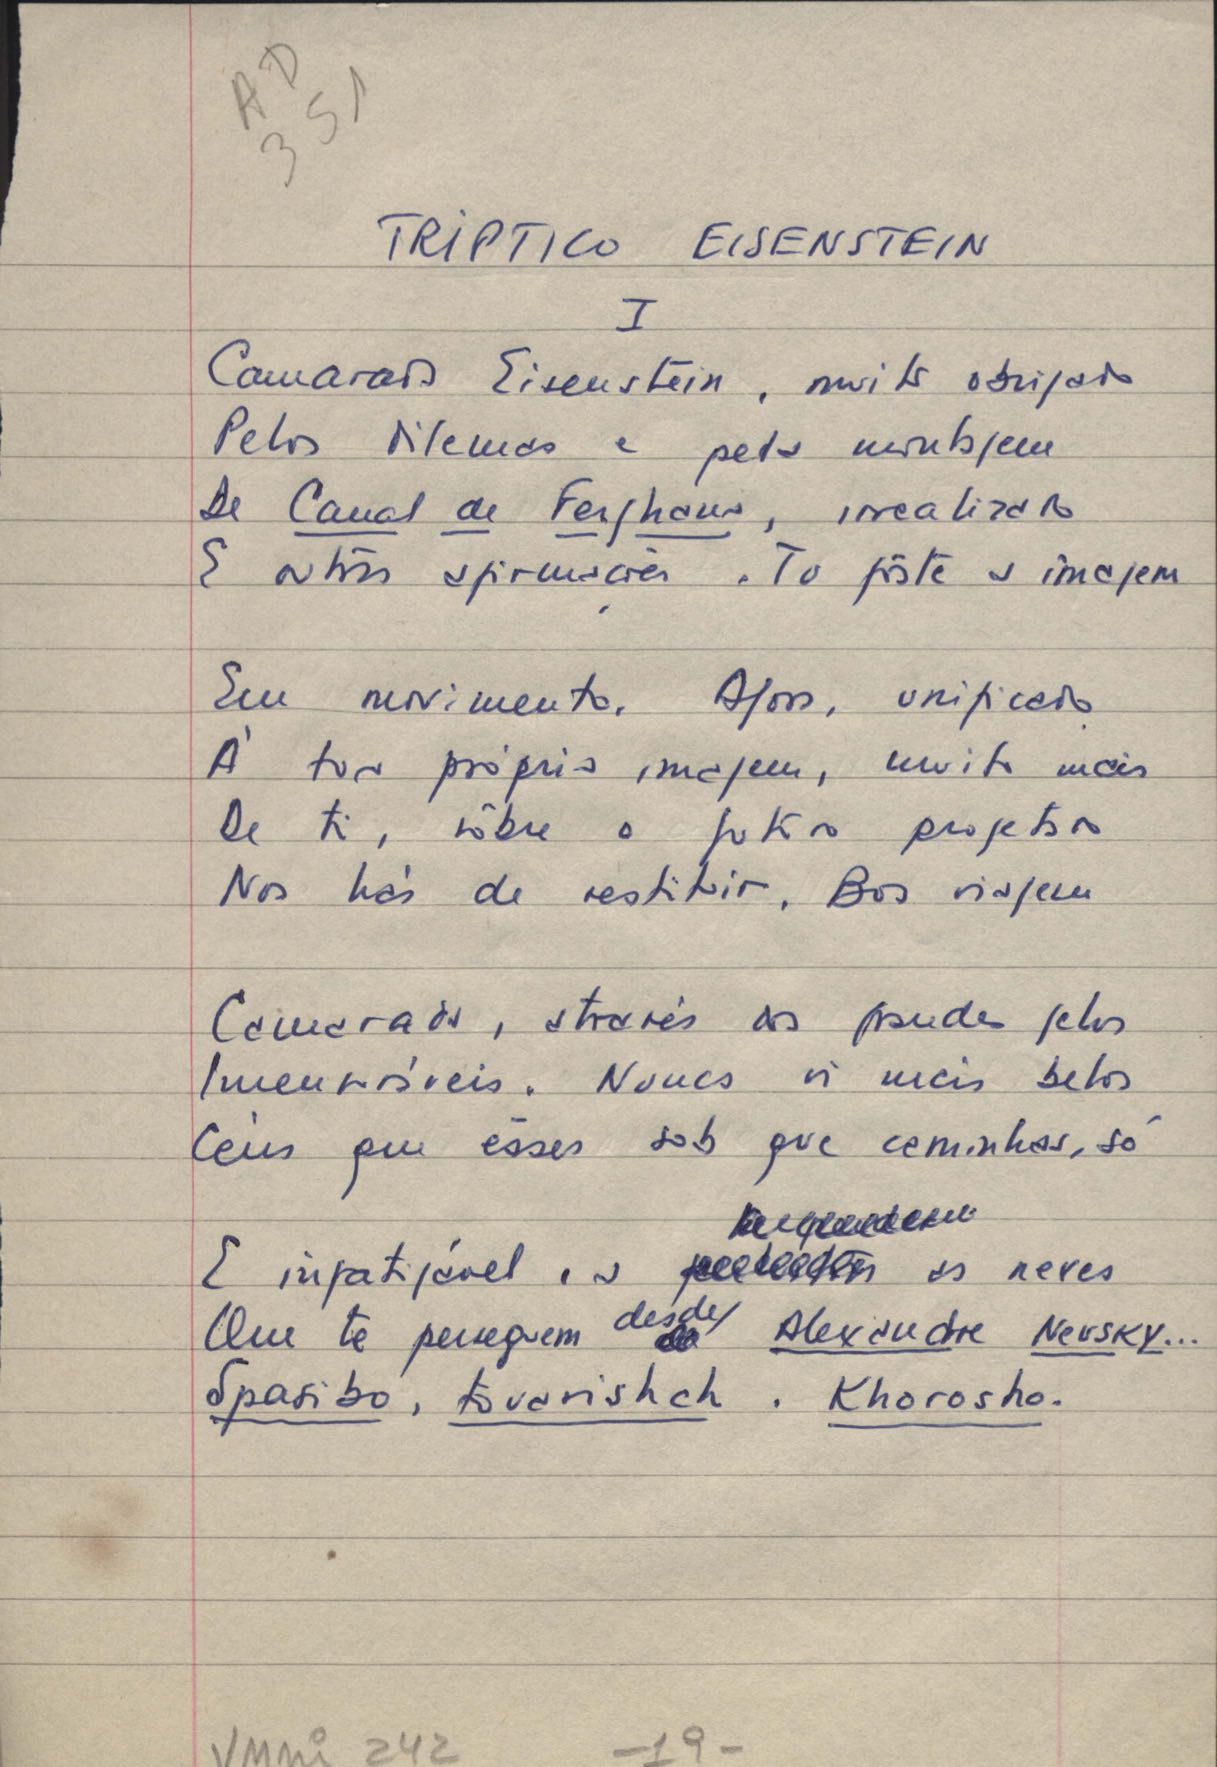 AD
351
TRÍPTICO EISENSTEIN
I
Camarada Eisenstein, muito obrigado
Pelos dilemas e pela montagem
De Canal de Ferghana, irrealizado
E outras afirmações. Tu fôste a imagem
Em movimento. Agora, unificado
À tua própria imagem, muito mais
De ti, sôbre o futuro projetado
Nos hás de restituir. Boa viagem
Camarada, através dos grandes gelos
Imensuráveis. Nunca vi mais belos
Céus que êsses sob que caminhas, só
E infatigável, a as neves
Que te perseguem desde Alexandre Nevsky...
Spasibo, tovarishch. Khorosho.
VMMi 242 -19-